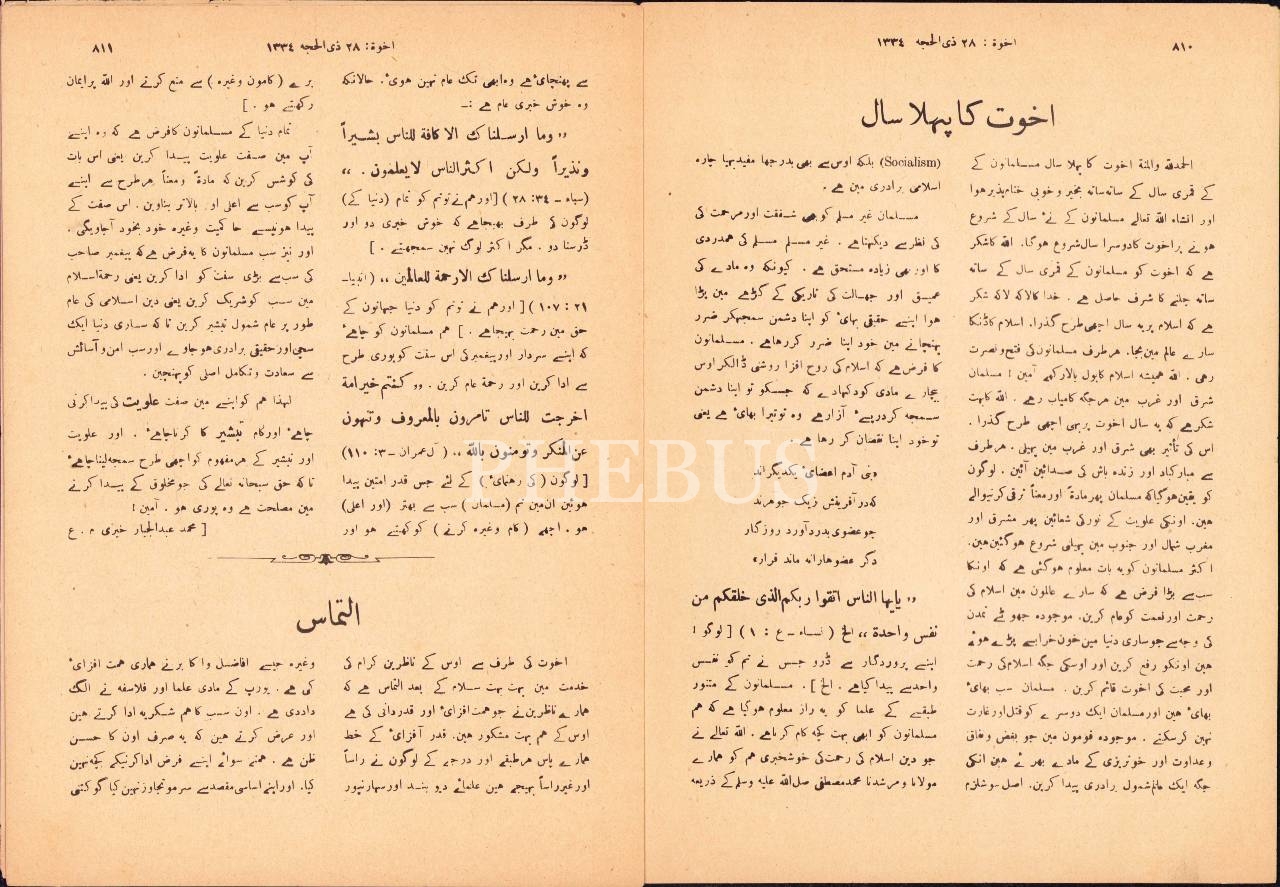 ۸۱۰
اخوة : ۲۸ ذی الحجه ۱۳۳٤
اخوت کا پہلا سال
الحمدلله والمنة اخوت کا پہلا سال مسلمانون کے
کے قمری سال کے ساتہ ساتہ بخیر وخوبی ختام پذیر ہوا
اور انشاء الله تعالے مسلمانون کے نۓ سال کے شروع
ہونے پر اخوت کا دوسرا سال شروع ہوگا. الله کا شکر
ہے کہ اخوت کو مسلمانون کے قمری سال کے ساتہ
ساتہ چلنے کا شرف حاصل ہے . خدا کا لاکہ لاکہ شکر
ہے کہ اسلام پر یہ سال اچھی طرح گذرا. اسلام کا ڈنکا
سارے عالم مین بجا. ہر طرف مسلمانون کی فتح ونصرت
رہی . الله ہمیشہ اسلام کا بول بالا رکھے آمین ! مسلمان
شرق اور غرب مین ہر جگہ کامیاب رہے . الله کا بہت
شکر ہے کہ یہ سال اخوت پر بہی اچھی طرح گذرا .
اس کی تأثیر بھی شرق اور غرب مین پہیلی . ہر طرف
سے مبارکباد اور زندہ باش کی صدائین آئین . لوگون
کو یقین ہوگیا کہ مسلمان پھر مادةً اور معناً ترقی کرنیوالے
ہین. اونکی علویت کے نور کی شعائین پھر مشرق اور
مغرب شمال اور جنوب مین پہیلی شروع ہوگئین ہین.
اکثر مسلمانون کو یہ بات معلوم ہوگئی ہے کہ اونکا
سب سے بڑا فرض ہے کہ سارے عالمون مین اسلام کی
رحمت اور نعمت کو عام کرین. موجودہ جھوٹے تمدن
کی وجہ سے جو ساری دنیا مین خون خرابے پڑے ہوئے
ہین اونکو رفع کرین اور اوسکی جگہ اسلام کی رحمت
اور محبت کی اخوت قائم کرین . مسلمان سب بھائی
بھائی ہین اور مسلمان ایک دوسرے کو قتل اور غارت
نہین کرسکتے . موجودہ قومون مین جو بغض ونفاق
وعداوت اور خونریزی کے مادے بھرے ہین انکی
جگہ ایک عالم شمول برادری پیدا کرین. اصل سوشلزم
(Socialism) بلکہ اوس سے بھی بدرجہا مفید بہیا چارہ
اسلامی برادری مین ہے .
مسلمان غیر مسلم کو بھی شفقت اور مرحمت کی
کی نظر سے دیکھتا ہے . غیر مسلم مسلم کی ہمدردی
کا اور بھی زیادہ مستحق ہے . کیونکہ وہ مادے کی
عمیق اور جہالت کی تاریکی کے گڑہے مین پڑا
ہوا اپنے حقیقی بھائی کو اپنا دشمن سمجھکر ضرر
پہنچانے مین خود اپنا ضرر کررہا ہے . مسلمانون
کا فرض ہے کہ اسلام کی روح افزا روشنی ڈالکر اوس
بیچارے مادی کو دکہادے کہ جسکو تو اپنا دشمن
سمجھ کر درپئے آزار ہے وہ تو تیرا بھائی ہے یعنی
تو خود اپنا نقصان کر رہا ہے .
«بنی آدم اعضای یکدیگراند
که در آفرینش زیک جوهرند
جو عضوی بدرد آورد روزگار
دگر عضوها را نه ماند قرار»
« یایها الناس اتقوا ربکم الذی خلقکم من
نفس واحدة ،، الخ ( نساء ــ ع : ۱ ) [ لوگو !
اپنے پروردگار سے ڈرو جس نے تم کو نفس
واحد سے پیدا کیا ہے . الخ ] . مسلمانون کے متنور
طبقے کے علما کو یہ راز معلوم ہوگیا ہے کہ ہم
مسلمانون کو ابھی بہت کچہ کام کرنا ہے . الله تعالے نے
جو دین اسلام کی رحمت کی خوشخبری ہم کو ہمارے
مولانا ومرشدنا محمد مصطفی صل الله علیه وسلم کے ذریعہ
۸۱۱
اخوة: ۲۸ ذی الحجه ۱۳۳٤
سے پھنچائی ہے وہ ابھی تک عام نہین ہوئی. حالانکہ
وہ خوش خبری عام ہے :ــ
« وما ارسلناك الا كافة للناس بشيراً
ونذيراً ولكن اكثر الناس لا يعلمون . ،،
(سباء ــ ۳٤: ۲۸ ) [اور ہم نے تم کو تمام (دنیا کے)
لوگون کی طرف بھیجا ہے کہ خوش خبری دو اور
ڈر سنا دو . مگر اکثر لوگ نہین سمجھتے . ]
« وما ارسلناك الا رحمة للعالمين ،، (انبیاــ
۲۱ : ۱۰۷ )[ اور ہم نے تم کو دنیا جہانون کے
حق مین رحمت بھیجا ہے . ] ہم مسلمانون کو چاہئے
کہ اپنے سردار اور پیغمبر کی اس سفت کو پوری طرح
سے ادا کرین اور رحمة عام کرین . « كنتم خير امة
اخرجت للناس تامرون بالمعروف وتنهون
عن المنكر وتومنون بالله ،، ( آل عمران ــ ۳: ۱۱۰)
[ لوگون ( کی رہنمائی ) کے لئے جس قدر امتین پیدا
ہوئین ان مین تم (مسلمان ) سب سے بہتر (اور اعلی)
ہو . اچھے ( کام وغیرہ کرنے ) کو کہتے ہو اور
برے (کامون وغیرہ ) سے منع کرتے اور الله پر ایمان
رکھتے ہو . ]
تمام دنیا کے مسلمانون کا فرض ہے کہ وہ اپنے
آپ مین صفت علویت پیدا کرین یعنی اس بات
کی کوشس کرین کہ مادةً و معناً ہر طرح سے اپنے
آپ کو سب سے اعلی اور بالاتر بناوین . اس صفت کے
پیدا ہونیسے حاکمیت وغیرہ خود بخود آجاویگی.
اور نیز سب مسلمانون کا یہ فرض ہے کہ پیغمبر صاحب
کی سب سے بڑی سفت کو ادا کرین یعنی رحمة اسلام
مین سب کو شریک کرین یعنی دین اسلامی کی عام
طور پر عام شمول تبشیر کرین تاکہ ساری دنیا ایک
سچی اور حقیقی برادری ہوجاوے اور سب امن وآسائش
سے سعادت وتکامل اصلی کو پہنچین .
لہذا ہم کو اپنے مین صفت علویت کی پیدا کرنی
چاہئے اور کام تبشیر کا کرنا چاہئے . اور علویت
اور تبشیر کے ہر مفہوم کو اچھی طرح سمجھ لینا چاہئے
تاکہ حق سبحانه تعالے کی جو مخلوق کے پیدا کرنے
مین مصلحت ہے وہ پوری ہو . آمین !
[ محمد عبدالجبار خیری م . ع
التماس
اخوت کی طرف سے اوس کے ناظرین کرام کی
خدمت مین بہت بہت سلام کے بعد التماس ہے کہ
ہمارے ناظرین نے جو ہمت افزائی اور قدردانی کی ہے
اوس کے ہم بہت مشکور ہین. قدر آفزائی کے خط
ہمارے پاس ہر طبقے اور درجے کے لوگون نے راساً
اور غیر راساً بھیجے ہین علمائے دیو بند اور سہارنپور
وغیرہ جیسے افاضل واکابر نے ہماری ہمت افزائی
کی ہے . یورپ کے مادی علما اور فلاسفہ نے الگ
داد دی ہے . اون سب کا ہم شکریہ ادا کرتے ہین
اور عرض کرتے ہین کہ یہ صرف اون کا حسن
ظن ہے . ہمنے سوائے اپنے فرض ادا کرنیکے کچہ نہین
کیا. اور اپنے اساسی مقصد سے سرمو تجاوز نہین کیا گو کتنی
PHEBUS